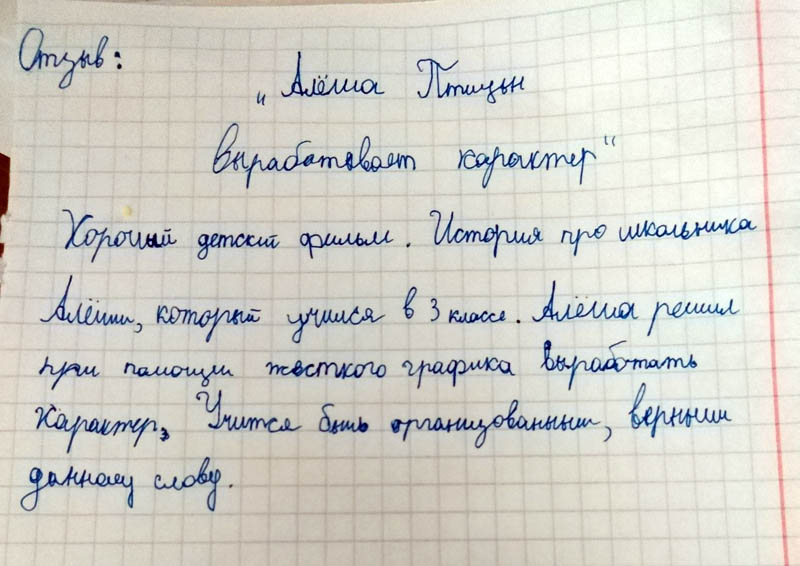 Отзыв:
„Алёша Птицын
вырабатывает характер“
Хороший детский фильм. История про школьника
Алёши, который учился в 3 классе. Алёша решил
при помощи жесткого графика выработать
характер, Учится быть организованным, верным
данному слову.